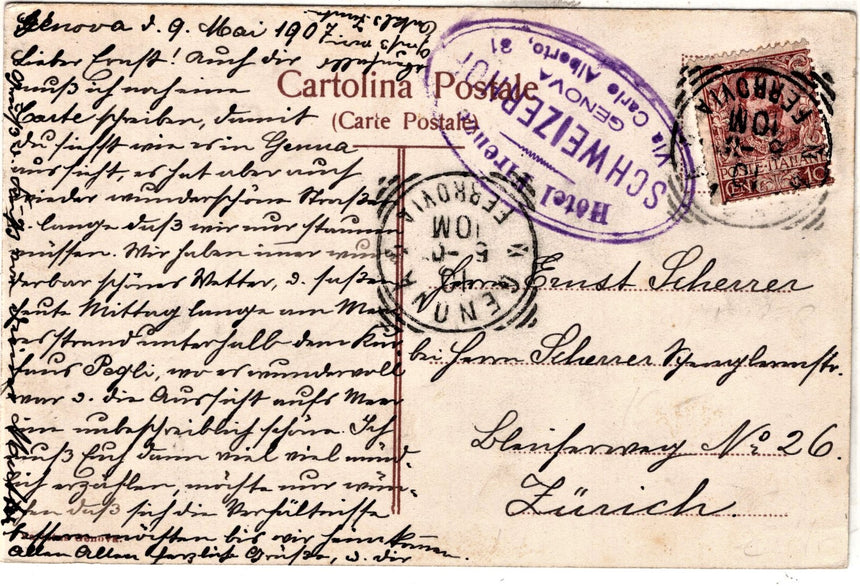 Genova d. 9. Mai 1907
Lieber Ernst! Auch dir
muß ich noch eine
Carte schreiben, damit
du siehst wie es in Genua
aussieht, es hat aber auch
wieder wunderschöne Straßen
u. lange daß wir nur staunen
müssen. Wir haben imer wun
derbar schönes Wetter, u. saßen
heute Mittag lange am Meer
esstrand unterhalb dem Kur
haus Pegli, wo es wundervoll
war u. die Aussicht aufs Meer
ist unbeschreiblich schön. Ich
muß Euch dann viel viel münd
lich erzählen, möchte nur wün
schen daß sich die Verhältnisse
bessern möchten bis wir heim kommen.
Allen Allen herzliche Grüße, u. dir
Cartolina Postale
(Carte Postale)
Hôtel
SCHWEIZERHOF
GENOVA
Via Carlo Alberto, 31
GENOVA
FERROVIA
10M
FERROVIA
10M
POSTE ITALIANE
10
Herrn Ernst Scherrer
bei Herrn Scherrer Spenglermstr.
Bleicherweg No 26.
Zürich.